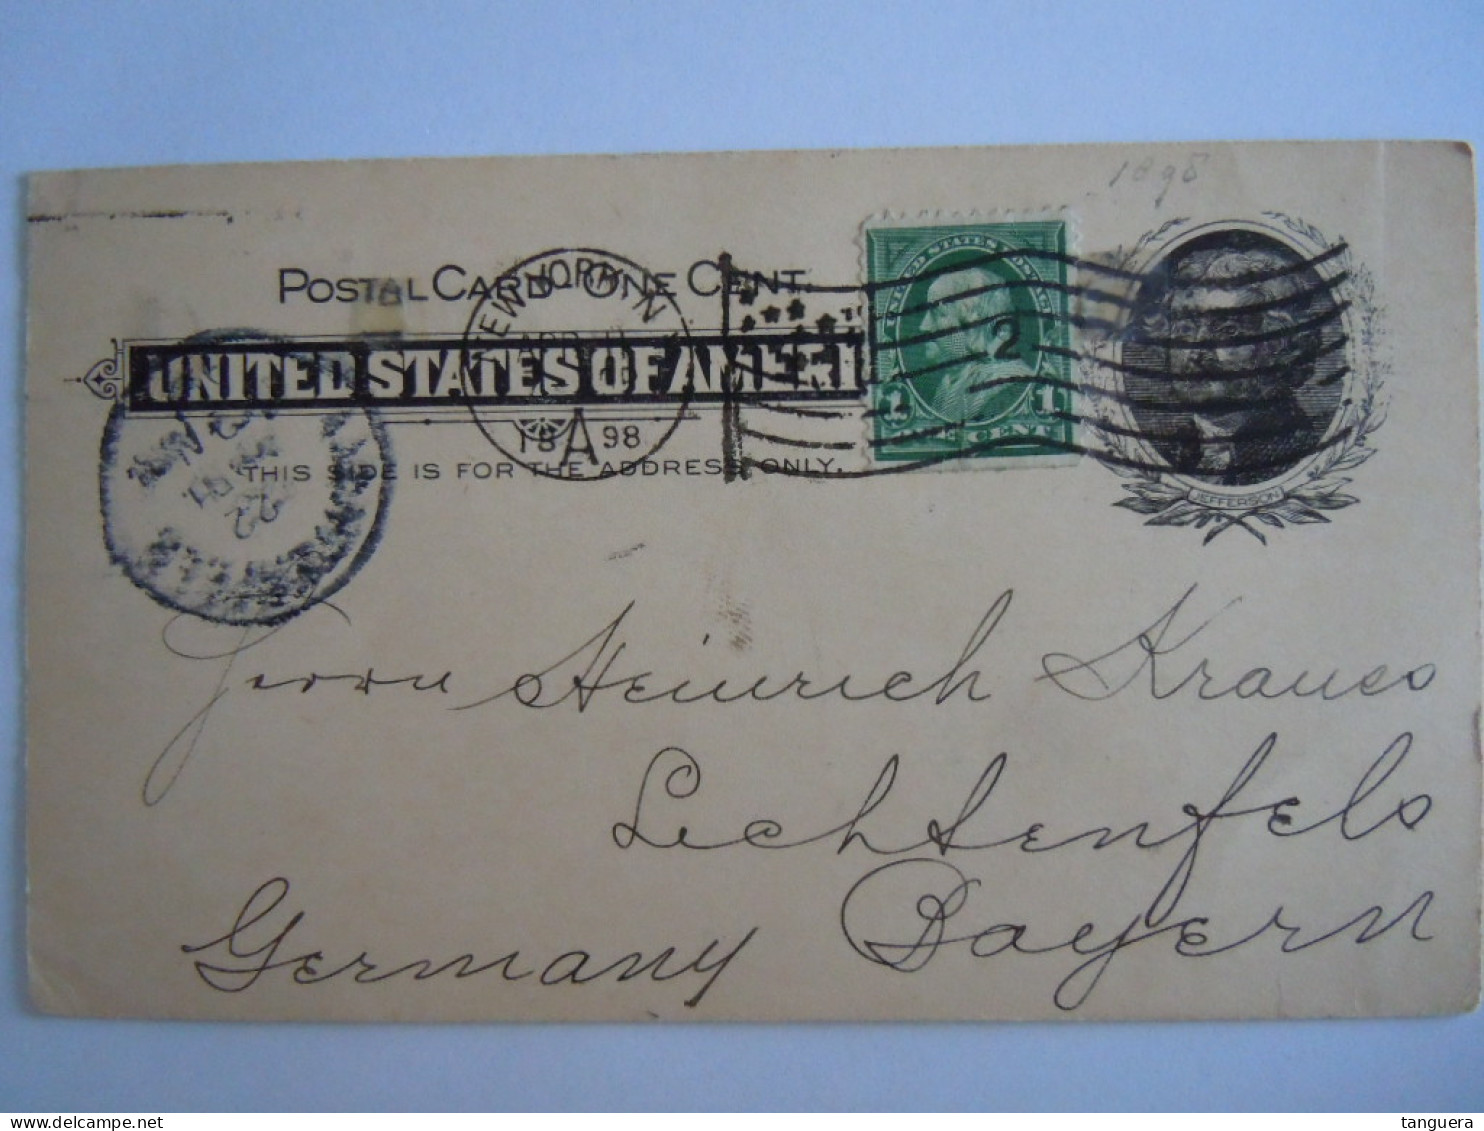 1898
POSTAL CARD ONE CENT.
UNITED STATES OF AMERI
THIS SIDE IS FOR THE ADDRESS ONLY.
NEW YORK, N
18 A 98
2
1 1
CENT
JEFFERSON
Herrn Heinrich Krauss
Lichtenfels
Bayern
Germany
© tanguera
www.delcampe.net